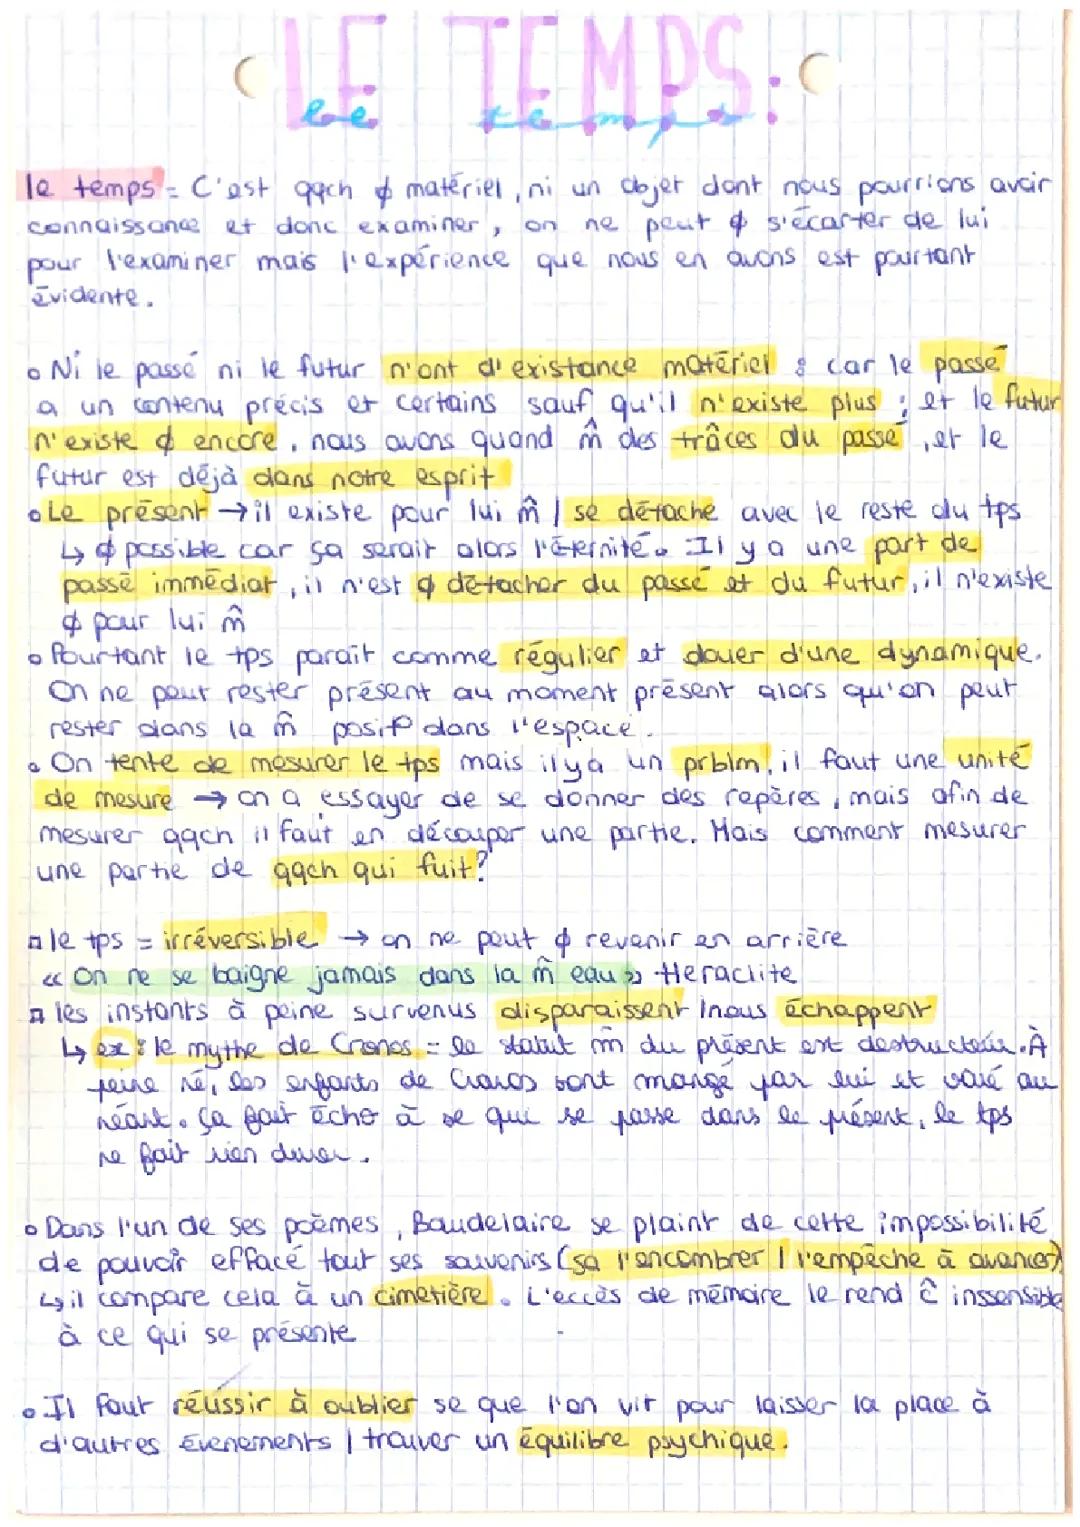 LE TEMPS:
le temps
le temps = C'est qqch ϕ matériel, ni un objet dont nous pourrions avoir
connaissance et donc examiner, on ne peut ϕ s'écarter de lui
pour l'examiner mais l'expérience que nous en avons est pourtant
évidente.
o Ni le passé ni le futur n'ont d'existance matériel : car le passé
a un contenu précis et certains sauf qu'il n'existe plus ; et le futur
n'existe ϕ encore, nous avons quand m̂ des trâces du passé, et le
futur est déjà dans notre esprit
o Le présent → il existe pour lui m̂ / se détache avec le reste du tps
↳ ϕ possible car ça serait alors l'éternité. Il y a une part de
passé immédiat, il n'est ϕ détacher du passé et du futur, il n'existe
ϕ pour lui m̂
o Pourtant le tps paraît comme régulier et douer d'une dynamique.
On ne peut rester présent au moment présent alors qu'on peut
rester dans la m̂ posit° dans l'espace.
o On tente de mesurer le tps mais il y a un prblm, il faut une unité
de mesure → on a essayer de se donner des repères, mais afin de
mesurer qqch il faut en découper une partie. Mais comment mesurer
une partie de qqch qui fuit?
□ le tps = irréversible → on ne peut ϕ revenir en arrière
« On ne se baigne jamais dans la m̂ eau » Heraclite
□ les instants à peine survenus disparaissent / nous échappent
↳ ex : le mythe de Cronos = le statut m̂ du présent est destructeur. À
peine né, les enfants de Cronos sont mangé par lui et voué au
néant. Ça fait écho à se qui se passe dans le présent, le tps
ne fait rien durer.
o Dans l'un de ses poèmes, Baudelaire se plaint de cette impossibilité
de pouvoir effacé tout ses souvenirs (sa l'encombrer / l'empêche à avancer)
↳ il compare cela à un cimetière. L'eccès de mémoire le rend ĉ inssensible
à ce qui se présente
o Il faut réussir à oublier se que l'on vit pour laisser la place à
d'autres évenements / trouver un équilibre psychique.